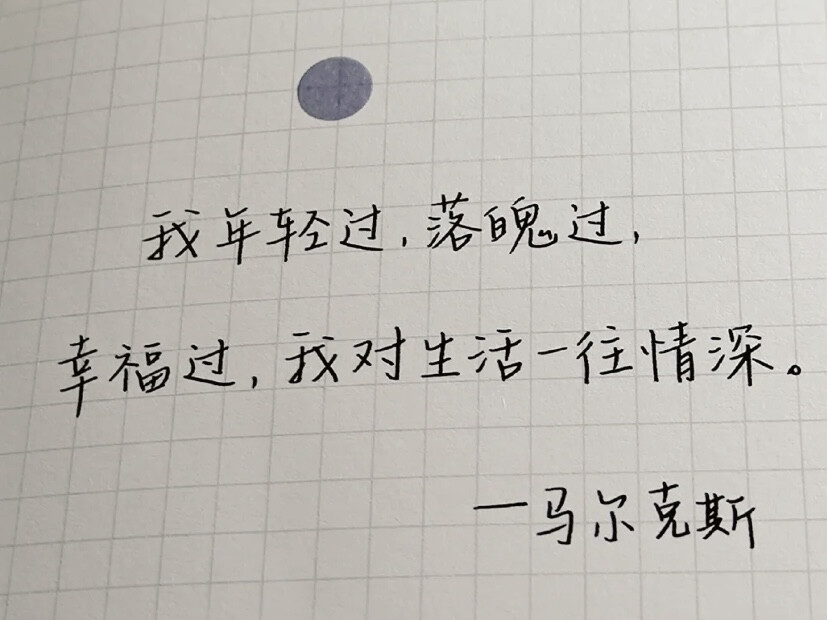 我年轻过,落魄过,
幸福过,我对生活一往情深。
—马尔克斯